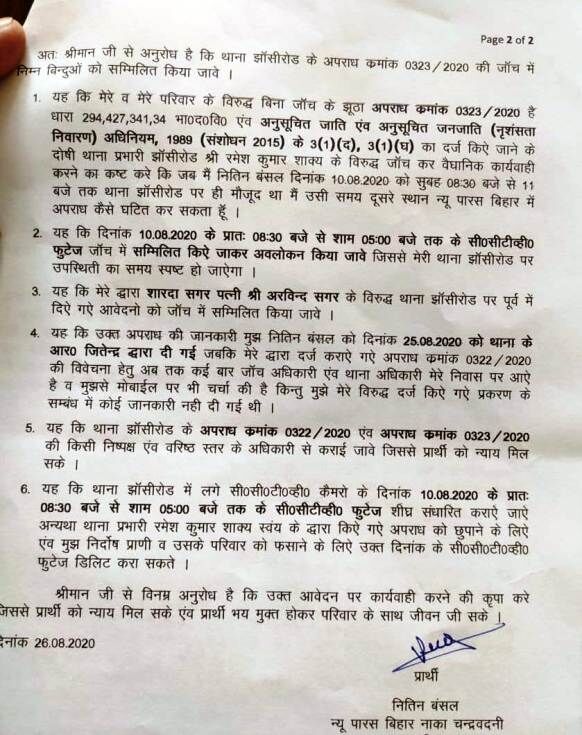 Page 2 of 2
अतः श्रीमान जी से अनुरोध है कि थाना झॉसीरोड के अपराध क्रमांक 0323/2020 की जॉच में
निम्न बिन्दुओं को सम्मिलित किया जावे ।
1. यह कि मेरे व मेरे परिवार के विरुद्ध बिना जॉच के झूठा अपराध क्रमांक 0323/2020 है
धारा 294,427,341,34 भा०द०वि० एंव अनुसूचित जाति एंव अनुसूचित जनजाति (नृशंसता
निवारण) अधिनियम, 1989 (संशोधन 2015) के 3(1)(द), 3(1)(घ) का दर्ज किऐ जाने के
दोषी थाना प्रभारी झॉसीरोड श्री रमेश कुमार शाक्य के विरुद्ध जॉच कर वैधानिक कार्यवाही
करने का कष्ट करे कि जब मैं नितिन बंसल दिनांक 10.08.2020 को सुबह 08:30 बजे से 11
बजे तक थाना झॉसीरोड पर ही मौजूद था मैं उसी समय दूसरे स्थान न्यू पारस बिहार में
अपराध कैसे घटित कर सकता हूँ ।
2. यह कि दिनांक 10.08.2020 के प्रातः 08:30 बजे से शाम 05:00 बजे तक के सी०सीटीव्ही०
फुटेज जॉच में सम्मिलित किऐ जाकर अवलोकन किया जावे जिससे मेरी थाना झॉसीरोड पर
उपस्थिती का समय स्पष्ट हो जाऐगा ।
3. यह कि मेरे द्वारा शारदा सगर पत्नी श्री अरविन्द सगर के विरुद्ध थाना झॉसीरोड पर पूर्व में
दिऐ गऐ आवेदनो को जॉच में सम्मिलित किया जावे ।
4. यह कि उक्त अपराध की जानकारी मुझ नितिन बंसल को दिनांक 25.08.2020 को थाना के
आर० जितेन्द्र द्वारा दी गई जबकि मेरे द्वारा दर्ज कराऐ गऐ अपराध क्रमांक 0322/2020
की विवेचना हेतु अब तक कई बार जॉच अधिकारी एंव थाना अधिकारी मेरे निवास पर आऐ
है व मुझसे मोबाईल पर भी चर्चा की है किन्तु मुझे मेरे विरुद्ध दर्ज किऐ गऐ प्रकरण के
सम्बंध में कोई जानकारी नही दी गई थी ।
5. यह कि थाना झॉसीरोड के अपराध क्रमांक 0322/2020 एंव अपराध क्रमांक 0323/2020
की किसी निष्पक्ष एंव वरिष्ठ स्तर के अधिकारी से कराई जावे जिससे प्रार्थी को न्याय मिल
सके ।
6. यह कि थाना झॉसीरोड में लगे सी०सी०टी०व्ही० कैमरो के दिनांक 10.08.2020 के प्रातः
08:30 बजे से शाम 05:00 बजे तक के सी०सीटीव्ही० फुटेज शीघ्र संधारित कराऐं जाऐ
अन्यथा थाना प्रभारी रमेश कुमार शाक्य स्वंय के द्वारा किऐ गऐ अपराध को छुपाने के लिऐ
एंव मुझ निर्दोष प्राणी व उसके परिवार को फसाने के लिऐ उक्त दिनांक के सी०सी०टी०व्ही०
फुटेज डिलिट करा सकते ।
श्रीमान जी से विनम्र अनुरोध है कि उक्त आवेदन पर कार्यवाही करने की कृपा करे
जिससे प्रार्थी को न्याय मिल सके एंव प्रार्थी भय मुक्त होकर परिवार के साथ जीवन जी सके ।
दिनांक 26.08.2020
प्रार्थी
नितिन बंसल
न्यू पारस बिहार नाका चन्द्रवदनी